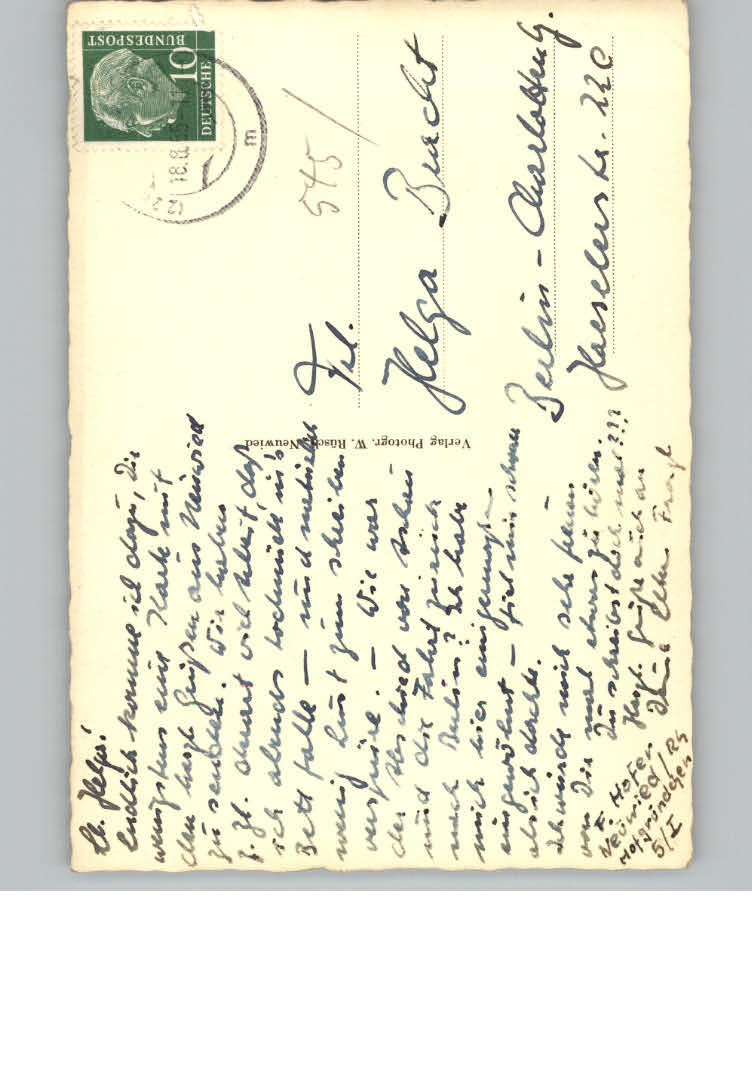 Lb. Helga!
Endlich komme ich dazu, Dir
wenigstens eine Karte mit
den herzl. Grüßen aus Neuwied
zu senden. Wir haben
z. Zt. derart viel Arbeit, daß
ich abends todmüde ins
Bett falle — und nicht
wenig Lust zum schreiben
verspüre. — Wie war
der Abschied von
und die Fahrt zurück
nach Berlin? Ich habe
mich hier einigermaßen
eingewöhnt — fiel mir schwer
als ich dachte.
Ich würde mich sehr freuen
von Dir mal etwas zu hören.
Du schreibst doch mal???
Herzl. Grüße auch an
Deine Eltern
F. Hofer
Neuwied/Rh
Hofgründchen
5/I
Verlag Photogr. W. Rüsch, Neuwied
Frl.
Helga Bucht
Berlin-Charlottenbg.
Haeselerstr. 22c
545
DEUTSCHE
BUNDESPOST
10
18.8.
m